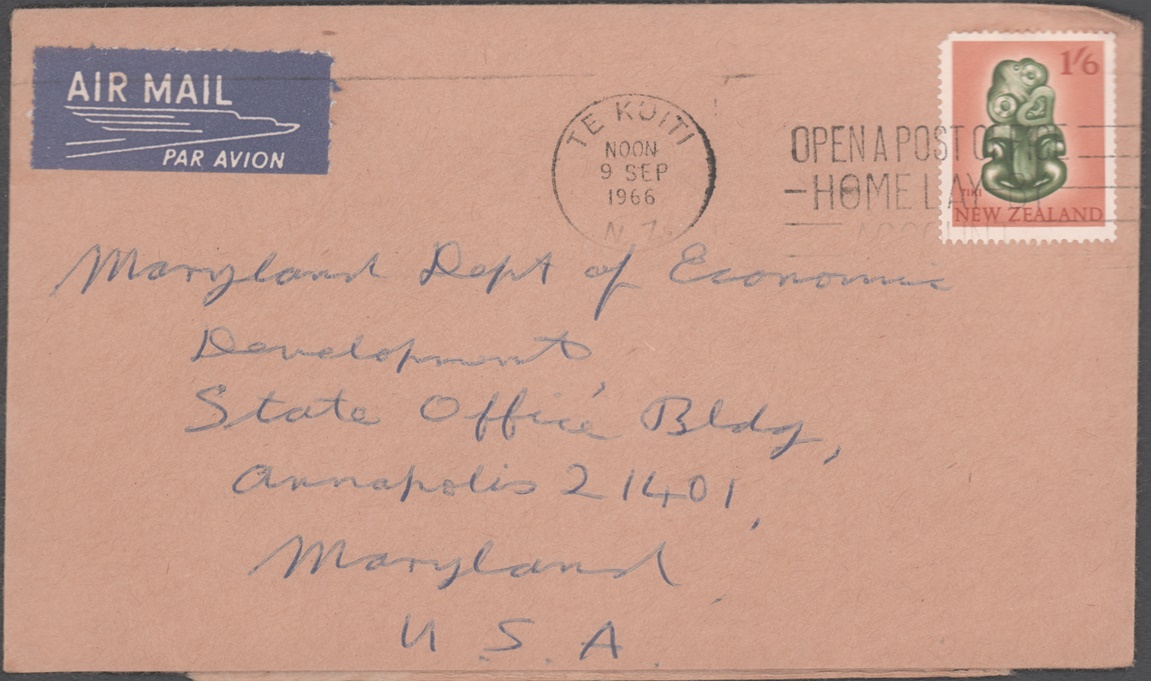 AIR MAIL
PAR AVION
TE KUITI
NOON
9 SEP
1966
N.Z.
OPEN A POST OFFICE
HOME LAY
ACCOUNT
1'6
TIKI
NEW ZEALAND
Maryland Dept of Economic
Development,
State Office Bldg,
Annapolis 21401,
Maryland
U.S.A.